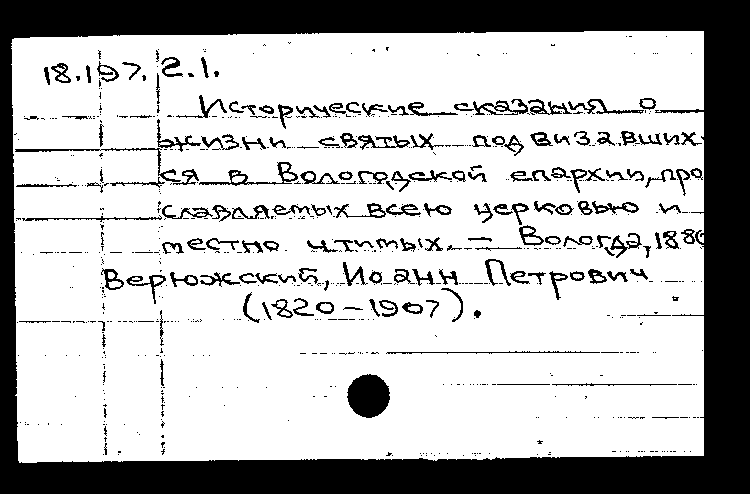 18.197. 2.1.
Исторические сказания о
жизни святых подвизавших-
ся в Вологодской епархии, про
славляемых всею церковью и
местно чтимых. — Вологда, 1880
Верюжский, Иоанн Петрович
(1820–1907).